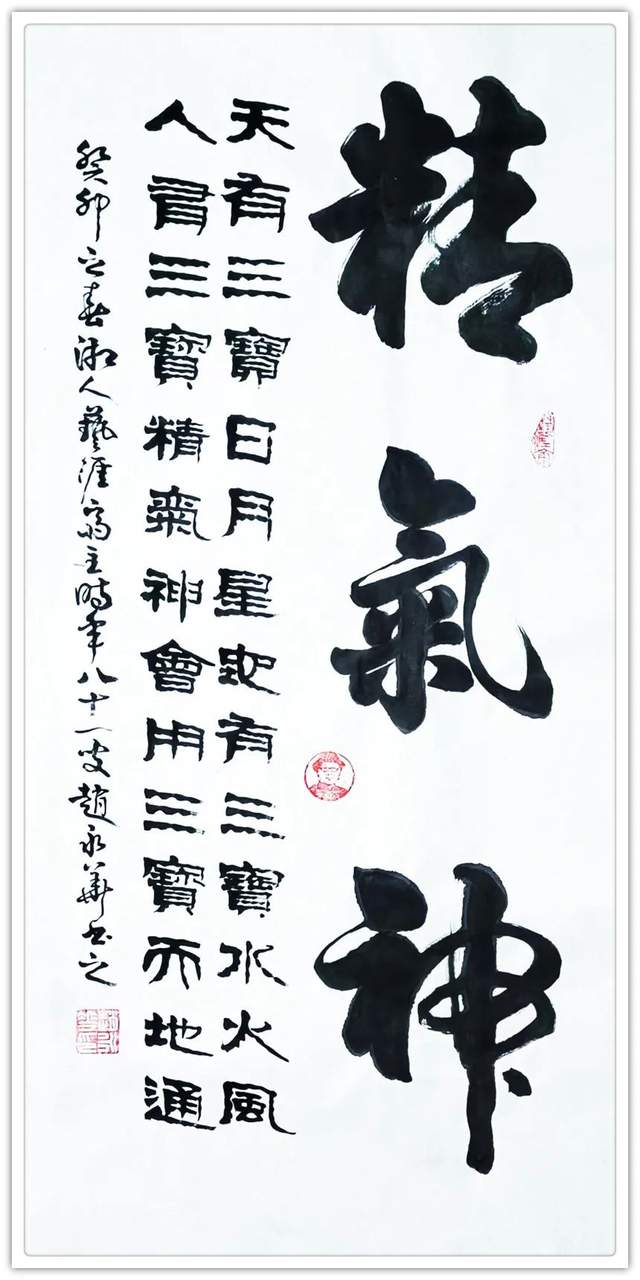 精氣神
天有三寶日月星地有三寶水火風
人有三寶精氣神會用三寶天地通
癸卯之春湖人藝涯齋主時年八十一叟趙永華書之